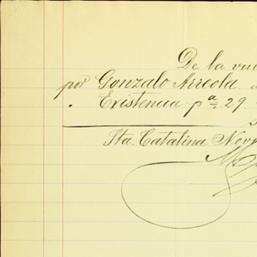 De la vu
por Gonzalo Arreola
Existencia pª 29
Sta. Catalina Nov